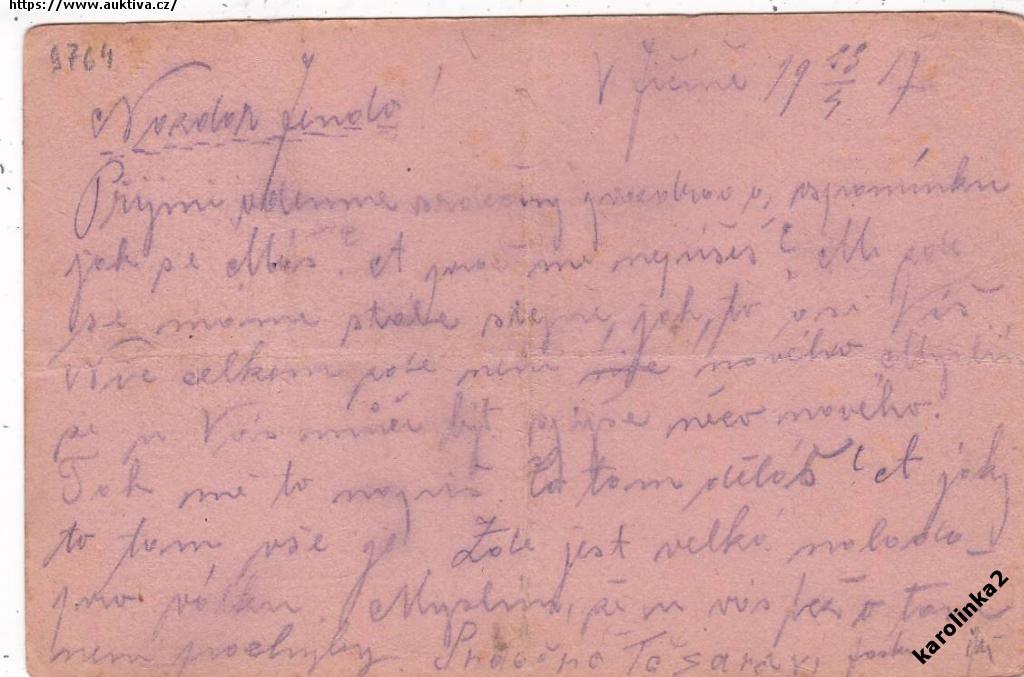 https://www.auktiva.cz/
9764
V Jičíně 19 23/5 17
Nazdar Jendo!
Přijmi odemne srdečný pozdrav a, vzpomínku
jak se Máš. A proč mě nepíšeš? Mi zde
se máme stále stejně, jak, to asi Víš
celkem zde není nového Myslím
že u Vás může být spíše něco nového.
Tak mě to napiš. Co tam děláš? A jaký
to tam vše je. Zde jest velká nálada
pro válku Myslím, že u vás též o tom
není pochyby. Srdečně
karolinka2